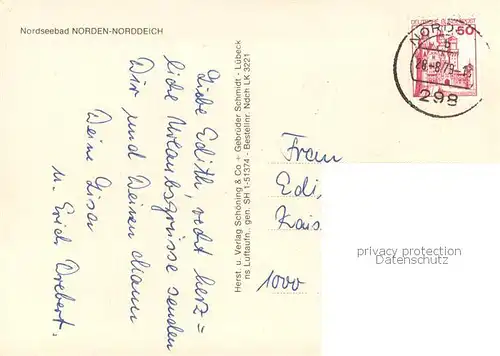 Nordseebad NORDEN-NORDDEICH
Liebe Edith, recht herz=
liche Urlaubsgrüsse senden
Dir und Deinen Mann
Deine Lisa
u. Erich Drebert.
Herst. u. Verlag Schöning & Co + Gebrüder Schmidt - Lübeck
ns Luftaufn., gen. SH 1-51374 - Bestellnr. Ndch LK 3221
NORD
b
-8.79-
298
50
Frau
Edi
Kais
1000
privacy protection
Datenschutz